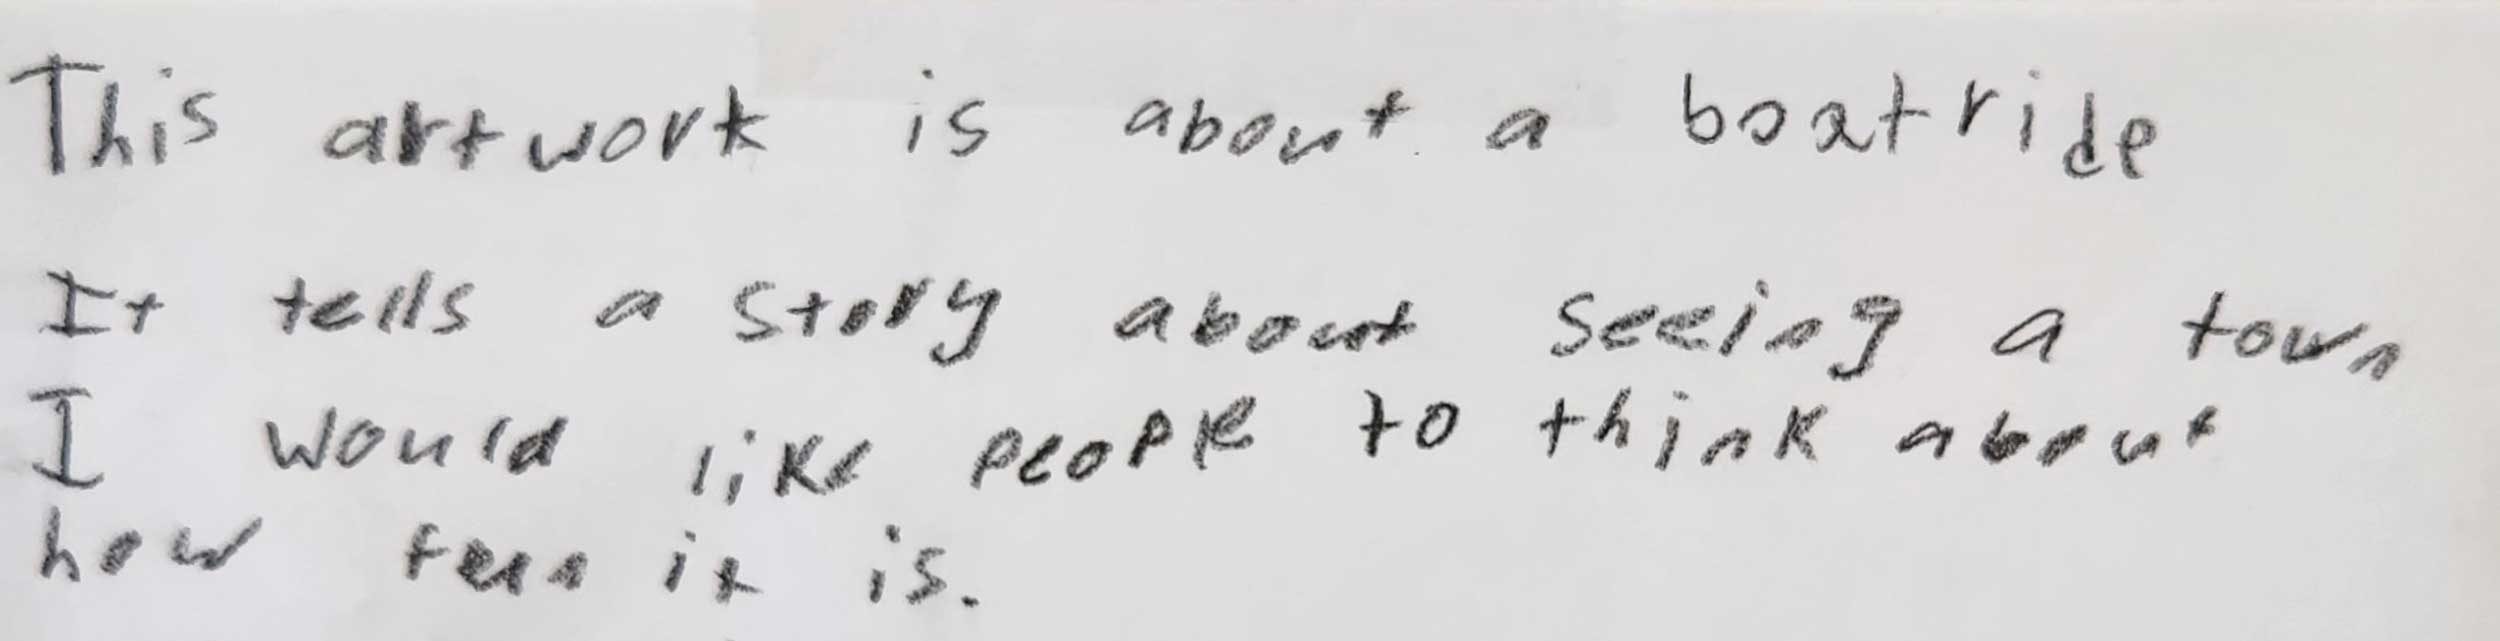 This artwork is about a boat ride
It tells a story about seeing a town
I would like people to think about
how fun it is.